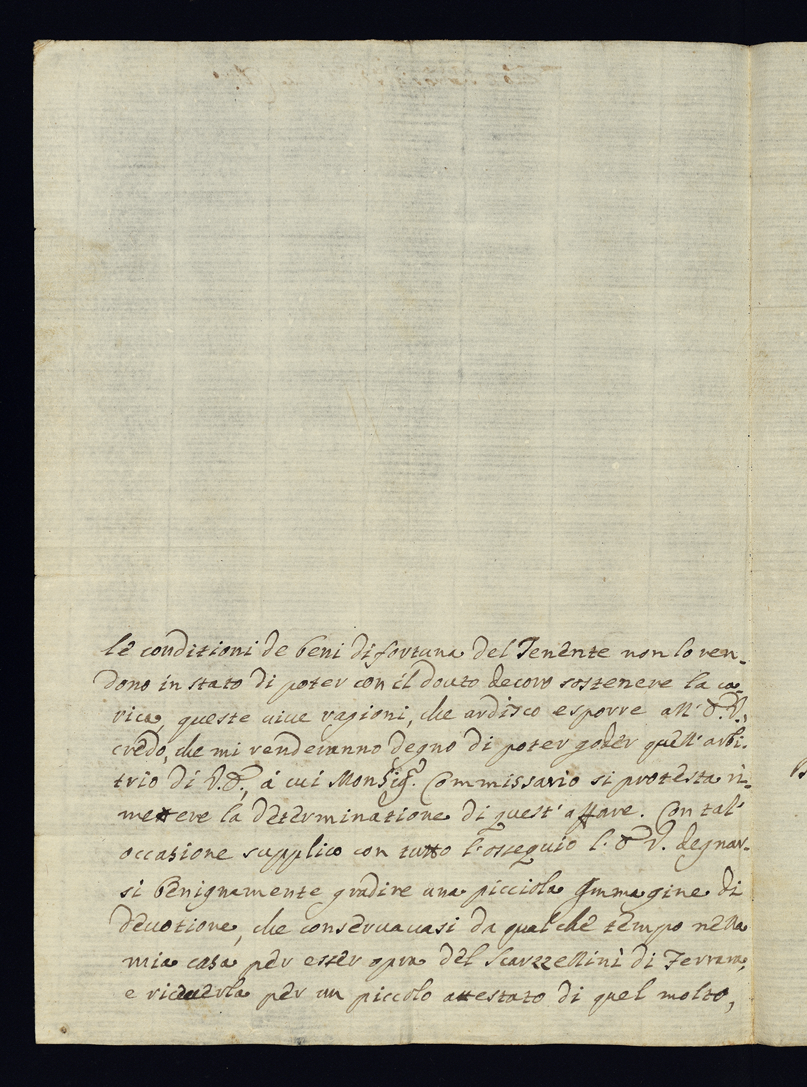 le conditioni de beni di fortuna del Tenente non lo ren-
dono in stato di poter con il douto decoro sostenere la ca-
rica, queste uiue ragioni, che ardisco esporre all'
credo, che mi renderanno degno di poter goder quell'arbi-
trio di à cui Monsig.r Commissario si protesta ri-
mettere la determinatione di quest'affare. Con tal'
occasione supplico con tutto l'ossequio l' degnar-
si benignamente gradire una picciola Immagine di
deuotione, che conseruauasi da qualche tempo nella
mia casa per esser opra del Scarzellini di Ferrara,
e riceuerla per un piccolo attestato di quel molto,